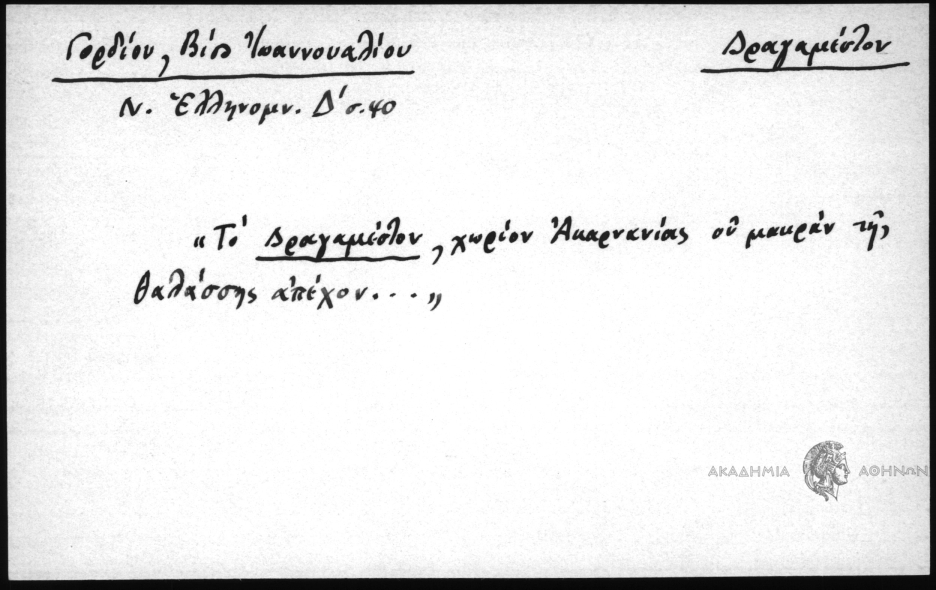 Γορδίου, Βίος Ἰωαννουλίου
Δραγαμέστον
Ν. Ἑλληνομν. Δ' σ. 40
"Τὸ Δραγαμέστον, χωρίον Ἀκαρνανίας οὐ μακρὰν τῆς
θαλάσσης ἀπέχον..."
ΑΚΑΔΗΜΙΑ ΑΘΗΝΩΝ